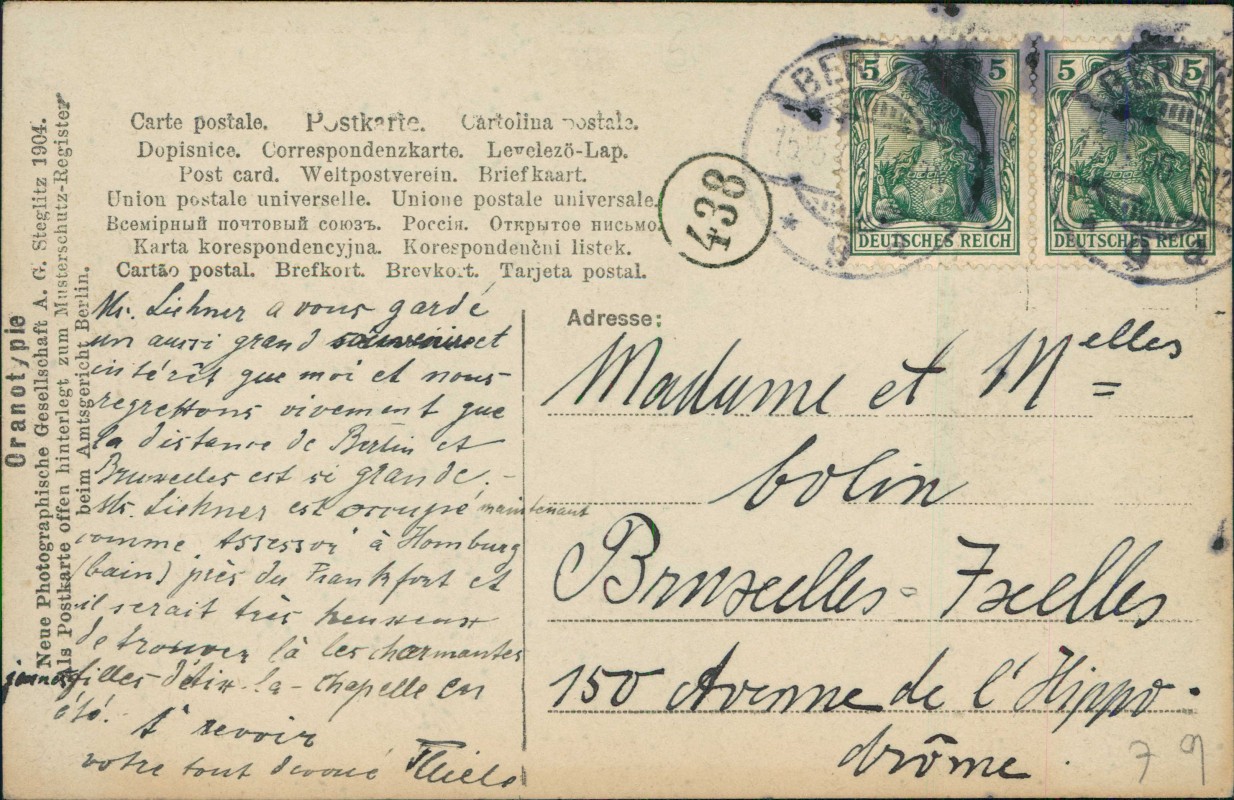 Carte postale. Postkarte. Cartolina postale.
Dopisnice. Correspondenzkarte. Levelezö-Lap.
Post card. Weltpostverein. Briefkaart.
Union postale universelle. Unione postale universale.
Всемірный почтовый союзъ. Россія. Открытое письмо.
Karta korespondencyjna. Korespondenčni listek.
Cartão postal. Brefkort. Brevkort. Tarjeta postal.
438
BERLIN
* 9 a
5 5
DEUTSCHES REICH
BERLIN
9 a
5 5
DEUTSCHES REICH
Oranotypie
Neue Photographische Gesellschaft A. G. Steglitz 1904.
Als Postkarte offen hinterlegt zum Musterschutz-Register
beim Amtsgericht Berlin.
Mr. Liehner a vous gardé
un aussi grand souvenir et
intérêt que moi et nous
regrettons vivement que
la distance de Berlin et
Bruxelles est si grande. -
Mr. Liehner est occupé maintenant
comme Assessor à Homburg
(bain) près du Frankfort et
il serait très heureux
de trouver là les charmantes
jeunes filles d'Aix-la-Chapelle en
été.
A revoir
votre tout dévoué
Adresse:
Madame et Melles
Colin
Bruxelles = Ixelles
150 Avenue de l'Hippo-
drôme.
79